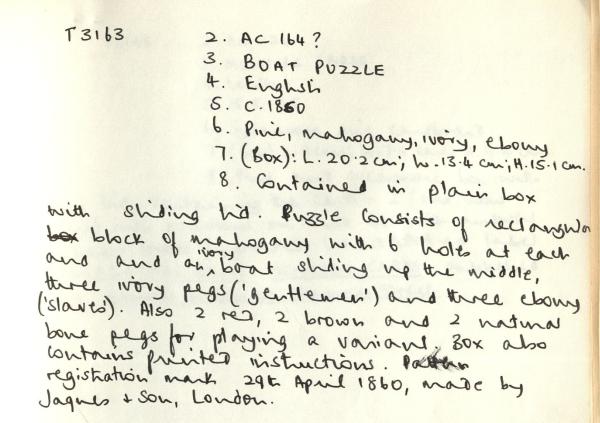 T3163 2. AC 164?
3. BOAT PUZZLE
4. English
5. C.1860
6. Pine, mahogany, ivory, ebony
7. (Box): L. 20.2cm; W. 13.4 cm; H. 15.1 cm.
8. Contained in plain box
with sliding lid. Puzzle consists of rectangular
box block of mahogany with 6 holes at each
and and an ivory boat sliding up the middle,
three ivory pegs ('gentlemen') and three ebony
('slaves'). Also 2 red, 2 brown and 2 natural
bone pegs for playing a variant. Box also
contains printed instructions.
registration mark 29th April 1860, made by
Jaques + Son, London.